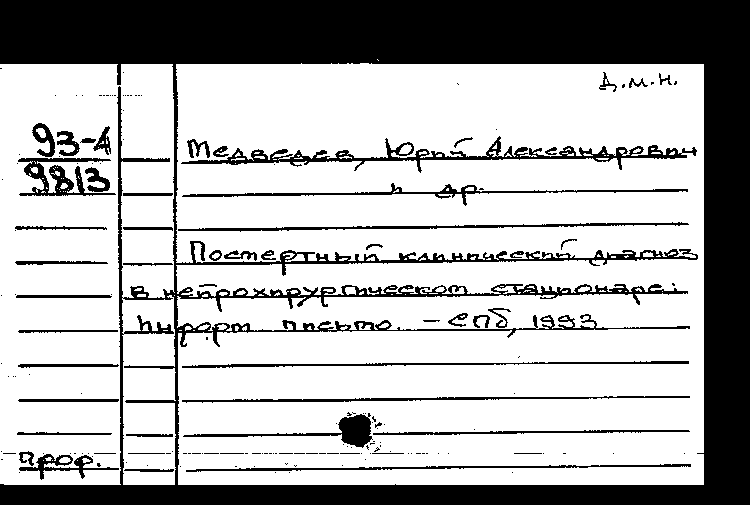 Д.м.н.
93-4
9813
Медведев, Юрий Александрович
и др.
Посмертный клинический диагноз
в нейрохирургическом стационаре:
Информ письмо. – СПб, 1993
проф.